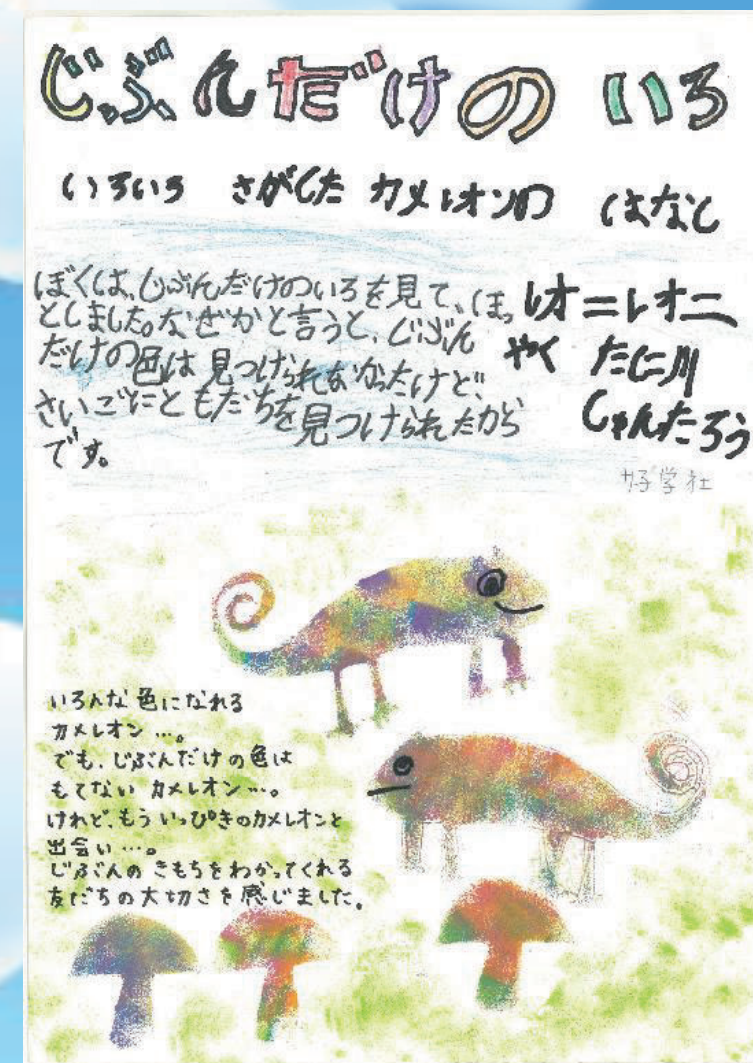 じぶんだけの いろ
いろいろ さがした カメレオンの はなし
ぼくは、じぶんだけのいろを見て、ほっ
としました。なぜかと言うと、じぶん
だけの色は見つけられなかったけど、
さいごにともだちを見つけられたから
です。
レオ=レオニ
やく たに川
しゅんたろう
好学社
いろんな色になれる
カメレオン…。
でも、じぶんだけの色は
もてない カメレオン…。
けれど、もういっぴきのカメレオンと
出会い…。
じぶんの きもちをわかってくれる
友だちの大切さを感じました。